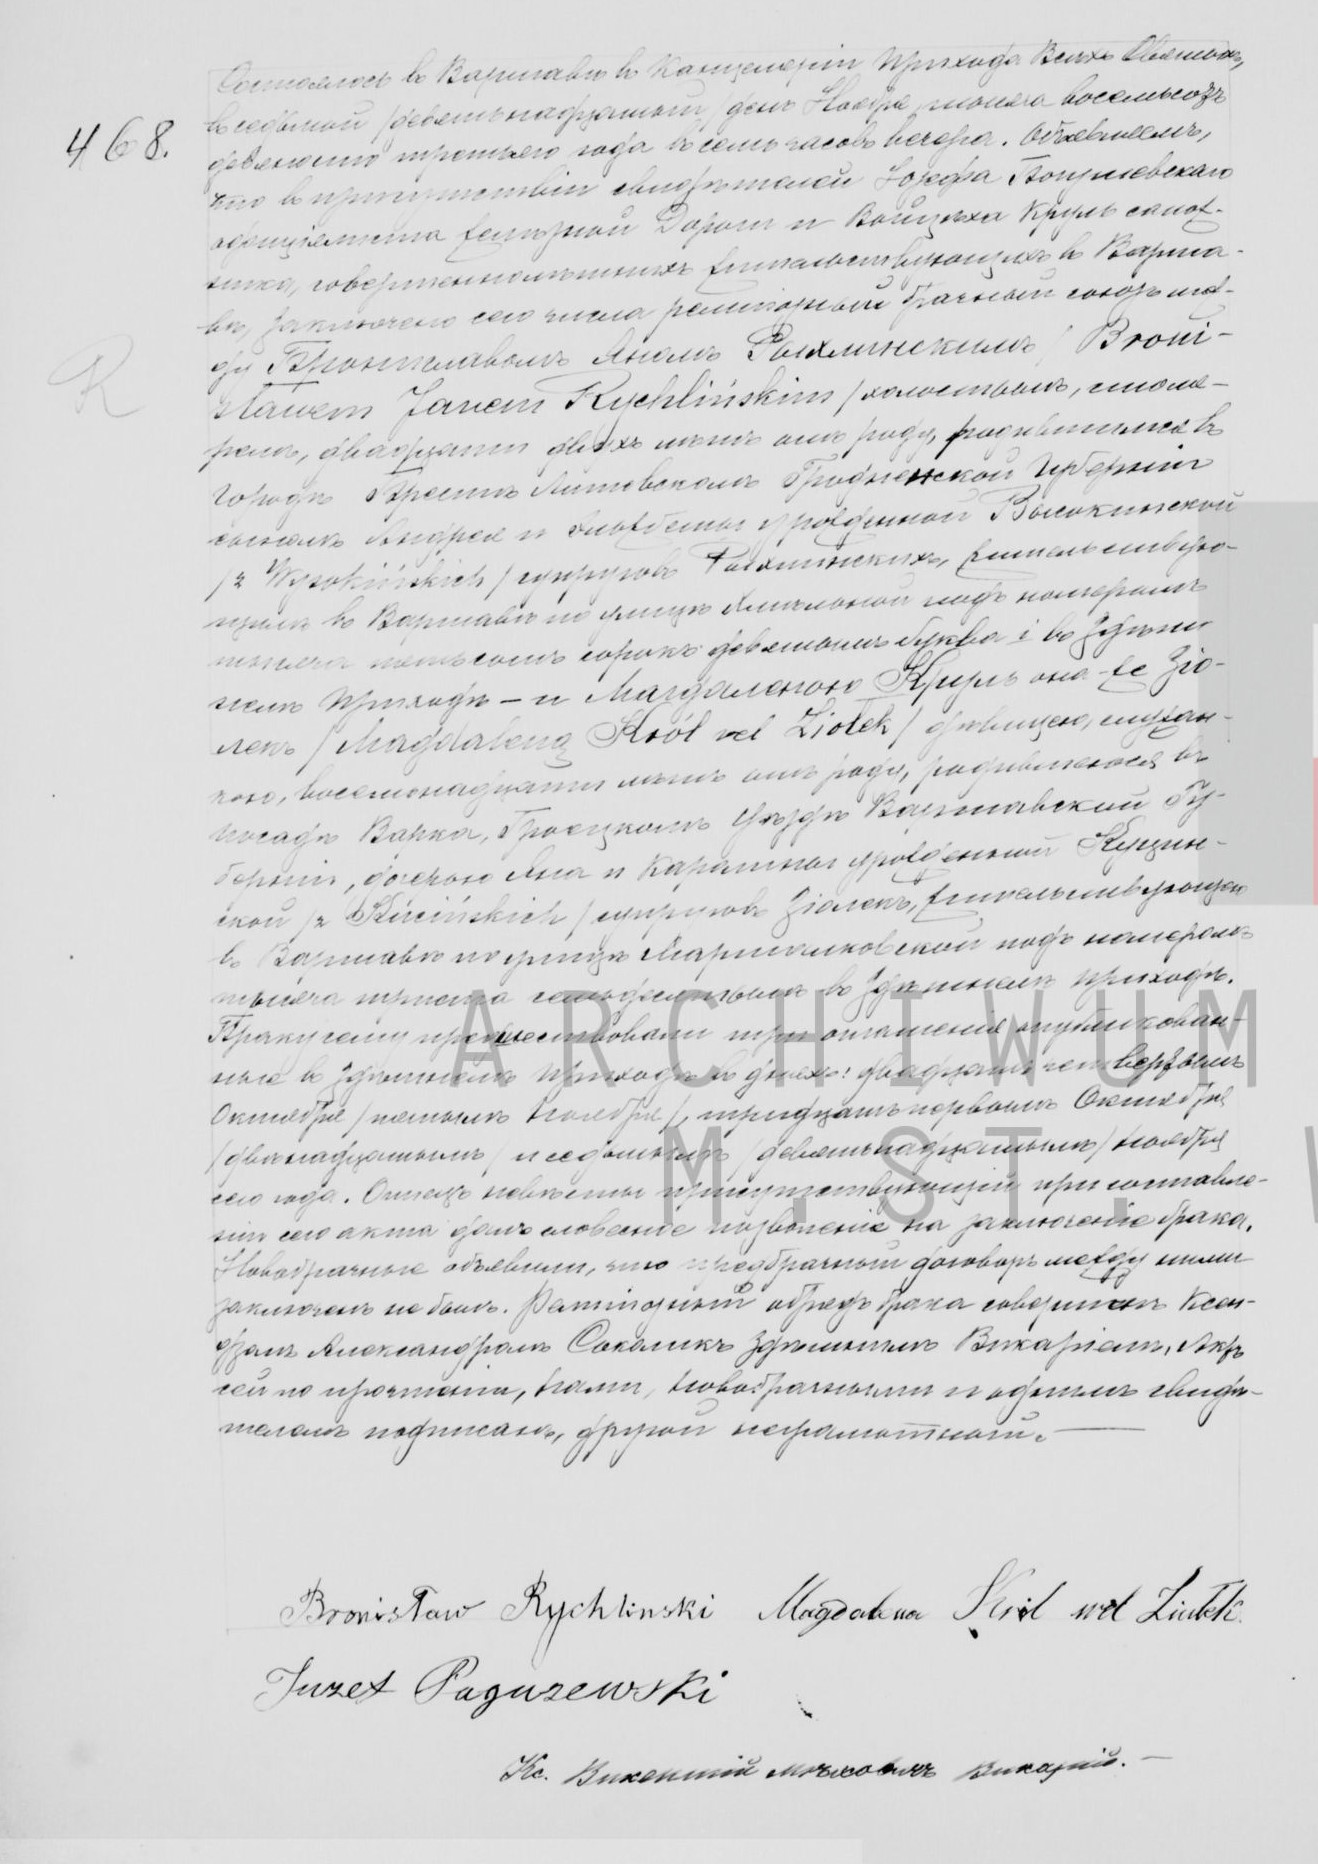 468.
Состоялось в Варшаве в Канцелярiи Прихода Всехъ Святыхъ,
въ седьмой /девятьнадцатый/ день Ноября тысяча восемьсотъ
девяносто третьяго года въ семь часовъ вечера. Объявляемъ,
что въ присутствiи свидѣтелей Iозефа Погушевскаго
оффицiялиста Желѣзной Дороги и Войцѣха Круль сапож-
ника, совершеннолѣтнихъ жительствующихъ въ Варша-
вѣ, заключенъ сего числа религiозный брачный союзъ меж-
ду Брониславомъ Яномъ Рыхлинскимъ / Broni-
sławem Janem Rychlińskim / холостымъ, столя-
ромъ, двадцати двухъ лѣтъ отъ роду, родившимся въ
городѣ Брестѣ Литовскомъ Гродненской Губернiи
сыномъ Андрея и Эльжбеты урожденной Высокинской
/z Wysokińskich/ супруговъ Рыхлинскихъ, жительствую-
щимъ въ Варшавѣ по улицѣ Хмѣльной подъ номеромъ
тысяча пятьсотъ сорокъ девятымъ буква i въ здѣш-
немъ Приходѣ – и Магдаленою Круль она-же Зiо-
лекъ / Magdaleną Król vel Ziołek / дѣвицею, служан-
кою, восемнадцати лѣтъ отъ роду, родившеюся въ
посадѣ Варка, Гроецкомъ Уѣздѣ Варшавской Гу-
бернiи, дочерью Яна и Каролины урожденной Куцин-
ской /z Kucińskich/ супруговъ Зiолекъ, жительствующею
въ Варшавѣ по улицѣ Маршалковской подъ номеромъ
тысяча триста семьдесятымъ въ здѣшнемъ Приходѣ.
Браку сему предшествовали три оглашенiя опубликован-
ныя въ здѣшнемъ Приходѣ въ дняхъ: двадцать четвертымъ
Октября /пятымъ Ноября/, тридцать первымъ Октября
/двѣнадцатымъ/ и седьмымъ /девятьнадцатымъ/ Ноября
сего года. Отецъ невѣсты присутствующiй при составле-
нiи сего акта далъ словесное позволенiе на заключенiе брака.
Новобрачные объявили, что предбрачный договоръ между ними
заключенъ не былъ. Религiозный обрядъ брака совершенъ Ксен-
дзомъ Александромъ Соколикъ здѣшнимъ Викарiемъ. Актъ
сей по прочтенiи, Нами, Новобрачными и однимъ свидѣ-
телемъ подписанъ, другой неграмотной.
Bronisław Rychlinski Magdalena Król vel Ziułek.
Juzef Poguzewski
Кс. Викентiй Викарiй.
ARCHIWUM
M. ST. W